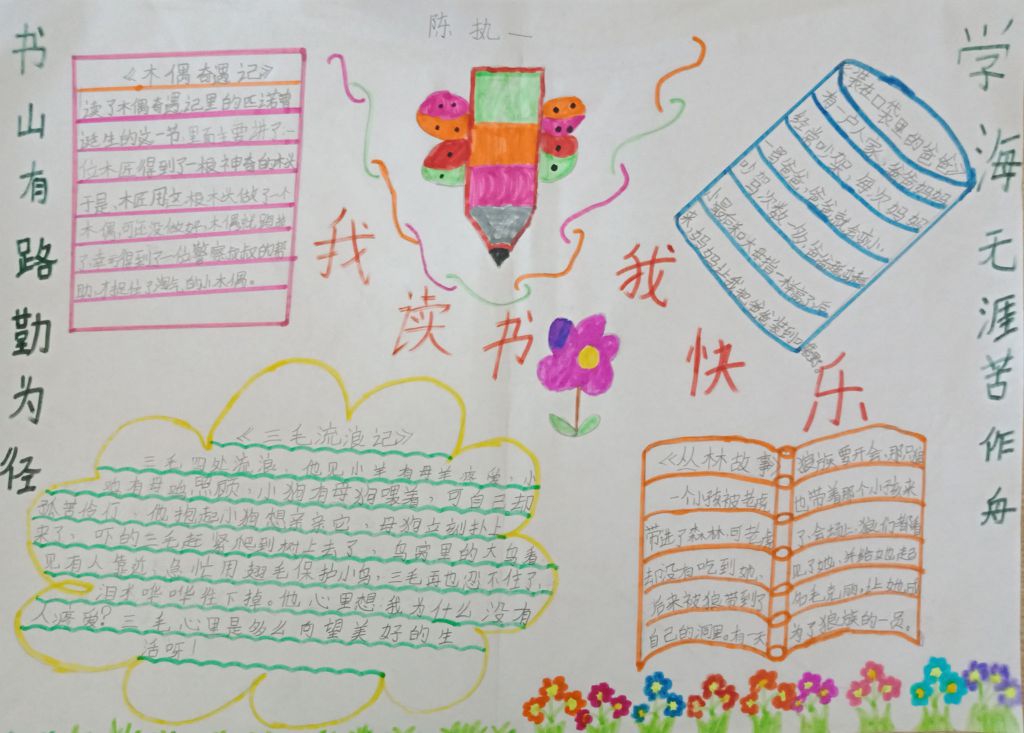 陈执一
书山有路勤为径
学海无涯苦作舟
我读书 我快乐
《木偶奇遇记》
读了木偶奇遇记里的匹诺曹
诞生的这一节里面主要讲了一
位木匠得到了一根神奇的木头
于是,木匠用这根木头做了一个
木偶,可还没做好,木偶就跑
了幸亏得到了一位警察叔叔的帮
助,才捉住了淘气的小木偶。
装在口袋里的爸爸
有一户人家,爸爸妈妈
经常吵架,每次妈妈
一骂爸爸,爸爸就会缩小,
吵骂次数一多,爸爸
小得和大拇指一样高了后
来,妈妈让我把爸爸装到口袋里。
《三毛流浪记》
三毛四处流浪,他见小羊有母羊疼爱,小
鸡有母鸡照顾,小狗有母狗喂着,可自己却
孤苦伶仃,他抱起小狗想亲亲它,母狗立刻扑上
来了,吓的三毛赶紧爬到树上去了,鸟窝里的大鸟看
见有人靠近,急忙用翅毛保护小鸟,三毛再也忍不住了,
泪水哗哗往下掉。他心里想:我为什么没有
人疼爱?三毛心里是多么向望美好的生
活呀!
《丛林故事》
一个小孩被老虎
带进了森林,可老虎
却没有吃到她,
后来被狼带到了
自己的洞里。有一天
狼族要开会,那只狼
也带着那个小孩来
了,会场上狼们都看
见了她,并给她起
名毛克丽,让她成
为了狼族的一员。